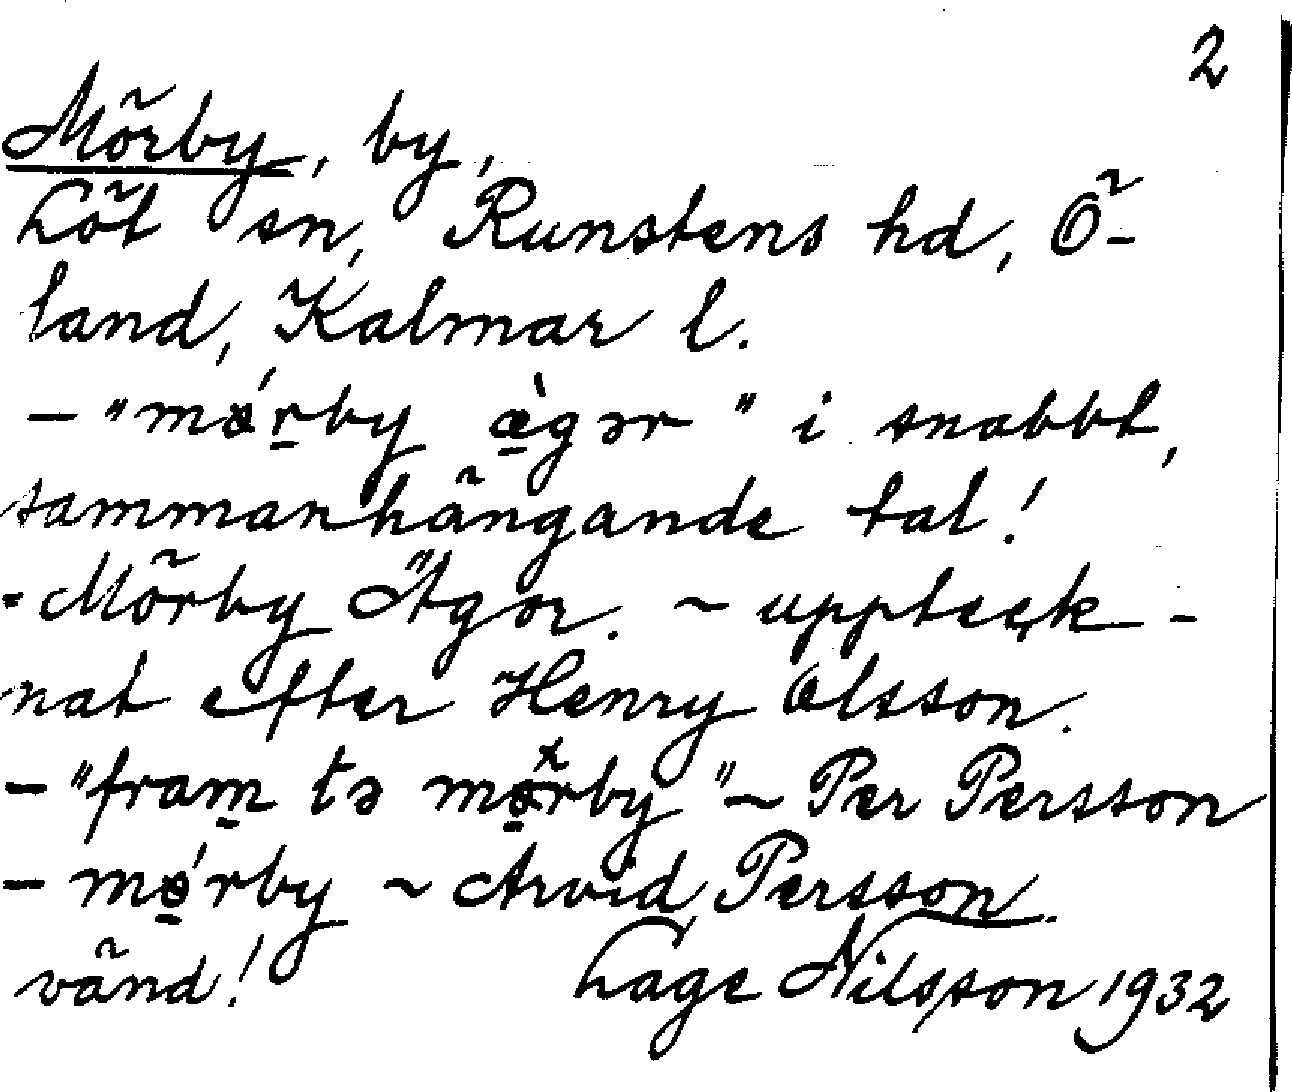 2
Mörby, by,
Löt sn, Runstens hd, Ö-
land, Kalmar l.
- "mǿ̱ṟby æ̱̀gər" i snabbt,
sammanhängande tal!
- Mörby Ägor. ~ uppteck-
nat efter Henry Olsson.
- "fram̱ tə mø̱̌rby" ~ Per Persson
- mǿ̱rby ~ Arvid Persson.
vänd! Lage Nilsson 1932